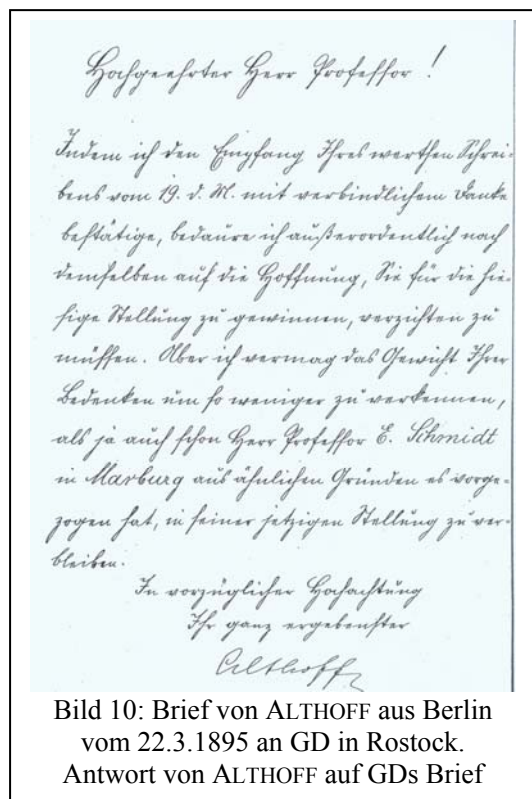 Hochgeehrter Herr Professor!
Indem ich den Empfang Ihres werthen Schrei-
bens vom 19. d. M. mit verbindlichem Danke
bestätige, bedaure ich außerordentlich nach
demselben auf die Hoffnung, Sie für die hie-
sige Stellung zu gewinnen, verzichten zu
müssen. Aber ich vermag das Gewicht Ihrer
Bedenken um so weniger zu verkennen,
als ja auch schon Herr Professor E. Schmidt
in Marburg aus ähnlichen Gründen es vorge-
zogen hat, in seiner jetzigen Stellung zu ver-
bleiben.
In vorzüglicher Hochachtung
Ihr ganz ergebenster
Althoff
Bild 10: Brief von ALTHOFF aus Berlin
vom 22.3.1895 an GD in Rostock.
Antwort von ALTHOFF auf GDs Brief